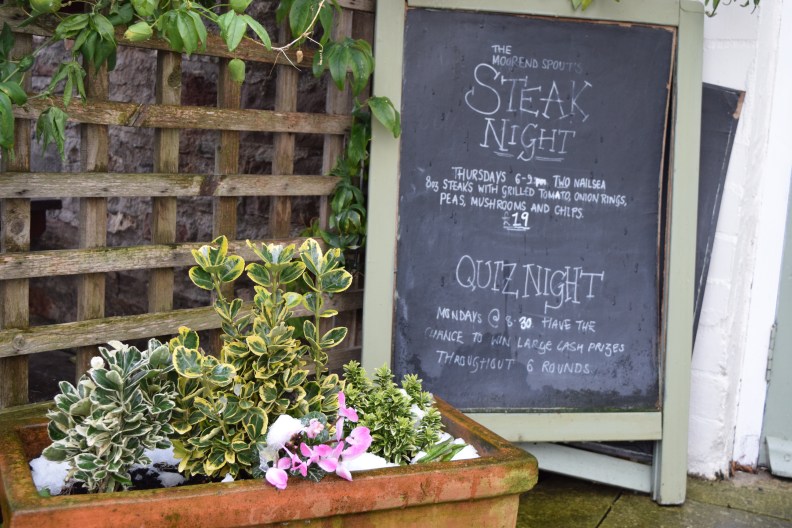 THE
MOOREND SPOUT'S
STEAK
NIGHT
THURSDAYS 6-9pm TWO NAILSEA
8oz STEAKS WITH GRILLED TOMATO, ONION RINGS,
PEAS, MUSHROOMS AND CHIPS.
£19
QUIZ NIGHT
MONDAYS @ 8.30 HAVE THE
CHANCE TO WIN LARGE CASH PRIZES
THROUGHOUT 6 ROUNDS.